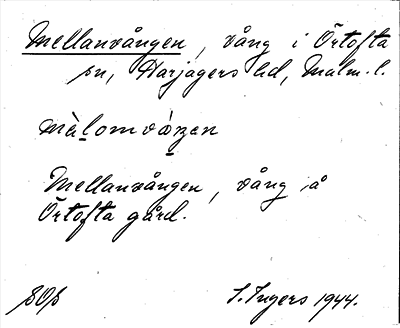 Mellanvången, vång i Örtofta
sn, Harjagers hd, Malm. l.
Mellanvången, vång å
Örtofta gård.
I. Ingers 1944.